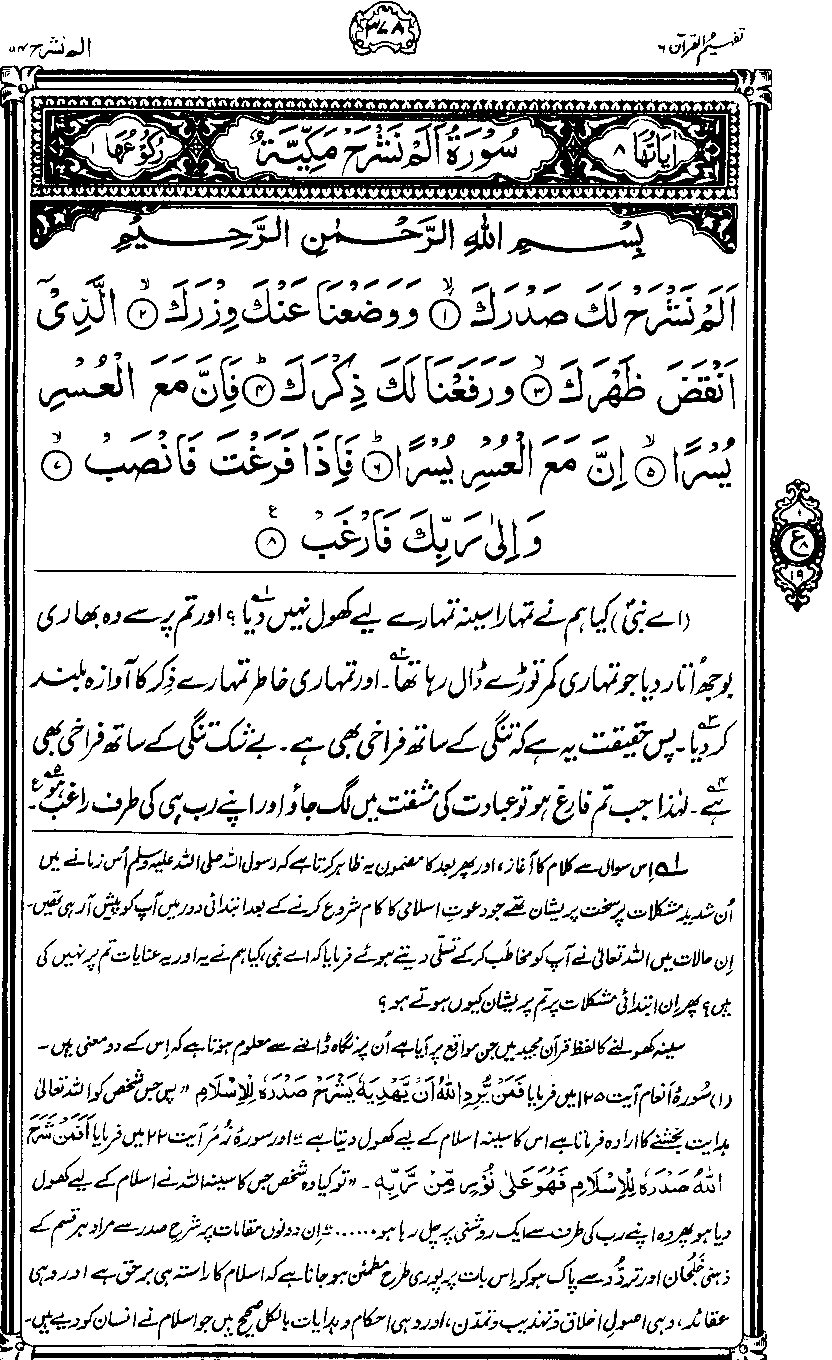 تفہیم القرآن ۶
۳۷۸
الم نشرح ۹۴
اٰیَاتُهَا ۸
سُوْرَةُ اَلَمْ نَشْرَحْ مَكِّيَّةٌ
رُكُوْعُهَا ۱
بِسْمِ اللّٰهِ الرَّحْمٰنِ الرَّحِيْمِ
اَلَمْ نَشْرَحْ لَكَ صَدْرَكَ ۱ وَوَضَعْنَا عَنْكَ وِزْرَكَ ۲ الَّذِیْۤ
اَنْقَضَ ظَهْرَكَ ۳ وَرَفَعْنَا لَكَ ذِكْرَكَ ۴ فَاِنَّ مَعَ الْعُسْرِ
یُسْرًا ۵ اِنَّ مَعَ الْعُسْرِ یُسْرًا ۶ فَاِذَا فَرَغْتَ فَانْصَبْ ۷
وَاِلٰی رَبِّكَ فَارْغَبْ ۸
ع
۱
ع ۸
۱۹
(اے نبیؐ) کیا ہم نے تمہارا سینہ تمہارے لیے کھول نہیں دیا۱؎؟ اور تم پر سے وہ بھاری
بوجھ اُتار دیا جو تمہاری کمر توڑے ڈال رہا تھا۲؎۔ اور تمہاری خاطر تمہارے ذِکر کا آوازہ بلند
کر دیا۳؎۔ پس حقیقت یہ ہے کہ تنگی کے ساتھ فراخی بھی ہے۔ بے شک تنگی کے ساتھ فراخی بھی
ہے۴؎۔ لہٰذا جب تم فارغ ہو تو عبادت کی مشقت میں لگ جاؤ اور اپنے رب ہی کی طرف راغب ہو۵؎۔ ع
۱؎ اِس سوال سے کلام کا آغاز، اور پھر بعد کا مضمون یہ ظاہر کرتا ہے کہ رسول اللہ صلی اللہ علیہ وسلم اُس زمانے میں
اُن شدید مشکلات پر سخت پریشان تھے جو دعوتِ اسلامی کا کام شروع کرنے کے بعد ابتدائی دور میں آپ کو پیش آ رہی تھیں۔
اِن حالات میں اللہ تعالیٰ نے آپ کو مخاطب کر کے تسلّی دیتے ہوئے فرمایا کہ اے نبی، کیا ہم نے یہ اور یہ عنایات تم پر نہیں کی
ہیں؟ پھر اِن ابتدائی مشکلات پر تم پریشان کیوں ہوتے ہو؟
سینہ کھولنے کا لفظ قرآن مجید میں جن مواقع پر آیا ہے اُن پر نگاہ ڈالنے سے معلوم ہوتا ہے کہ اِس کے دو معنی ہیں۔
(۱) سُورۂ اَنعام آیت ۱۲۵ میں فرمایا فَمَنْ يُّرِدِ اللّٰهُ اَنْ يَّهْدِيَهٗ يَشْرَحْ صَدْرَهٗ لِلْاِسْلَامِ ”پس جس شخص کو اللہ تعالیٰ
ہدایت بخشنے کا ارادہ فرماتا ہے اس کا سینہ اسلام کے لیے کھول دیتا ہے“ اور سورۂ زُمَر آیت ۲۲ میں فرمایا اَفَمَنْ شَرَحَ
اللّٰهُ صَدْرَهٗ لِلْاِسْلَامِ فَهُوَ عَلٰى نُوْرٍ مِّنْ رَّبِّهٖ۔ ”تو کیا وہ شخص جس کا سینہ اللہ نے اسلام کے لیے کھول
دیا ہو پھر وہ اپنے رب کی طرف سے ایک روشنی پر چل رہا ہو......“ اِن دونوں مقامات پر شرحِ صدر سے مراد ہر قسم کے
ذہنی خَلجان اور تردُّد سے پاک ہو کر اِس بات پر پوری طرح مطمئن ہو جانا ہے کہ اسلام کا راستہ ہی برحق ہے اور وہی
عقائد، وہی اصولِ اخلاق و تہذیب و تمدن، اور وہی احکام و ہدایات بالکل صحیح ہیں جو اسلام نے انسان کو دیے ہیں۔